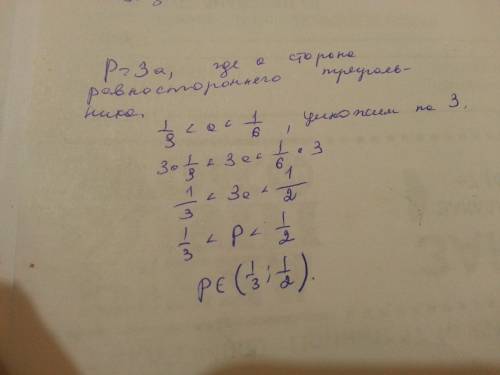 P = 3a, где a сторона
равностороннего треуголь-
ника.
1/9 < a < 1/6, умножим на 3.
3·1/9 < 3a < 1/6·3
1/3 < 3a < 1/2
1/3 < P < 1/2
P∈(1/3; 1/2).